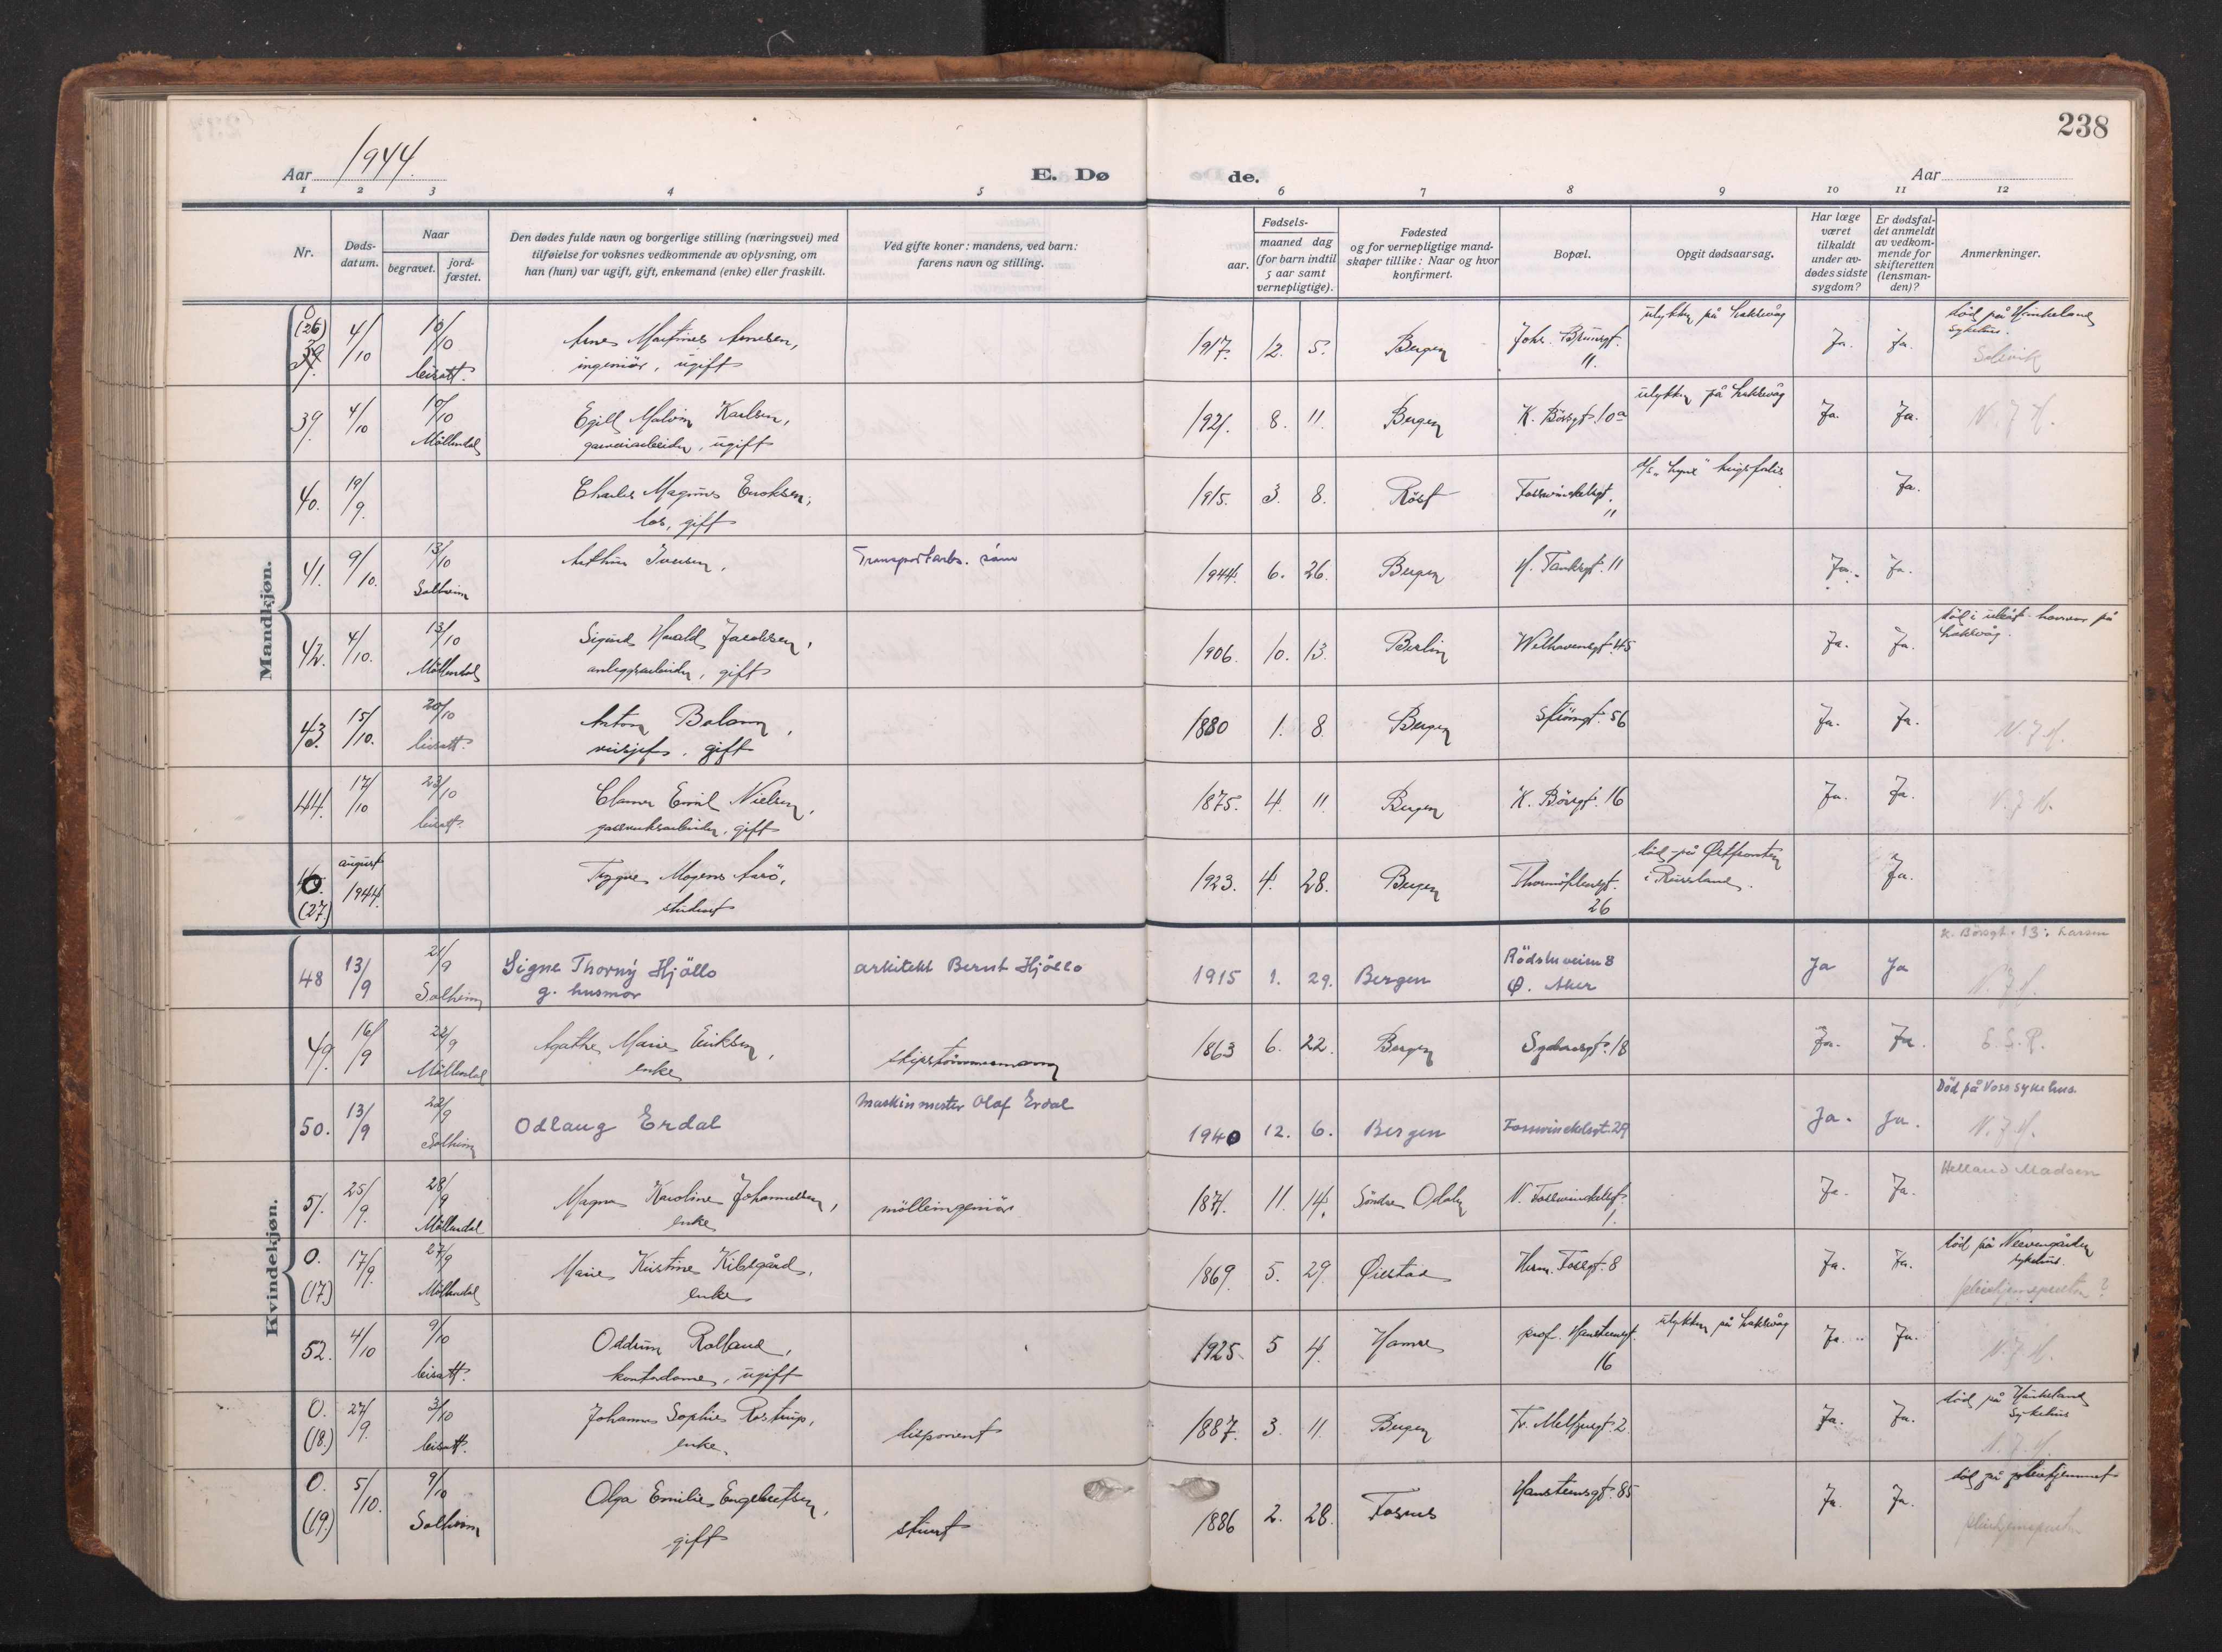 238
Aar 1944.
E. Dø
de.
Aar
1 2 3 4 5 6 7 8 9 10 11 12
Nr.
Døds-
datum.
Naar
begravet.
jord-
fæstet.
Den dødes fulde navn og borgerlige stilling (næringsvei) med
tilføielse for voksnes vedkommende av oplysning, om
han (hun) var ugift, gift, enkemand (enke) eller fraskilt.
Ved gifte koner: mandens, ved barn:
farens navn og stilling.
Fødsels-
aar.
maaned dag
(for barn indtil
5 aar samt
vernepligtige).
Fødested
og for vernepligtige mand-
skaper tillike: Naar og hvor
konfirmert.
Bopæl.
Opgit dødsaarsag.
Har læge
været
tilkaldt
under av-
dødes sidste
sygdom?
Er dødsfal-
det anmeldt
av vedkom-
mende for
skifteretten
(lensman-
den)?
Anmerkninger.
Mandkjøn.
0 (26) 4/10 10/10 Arne Martines Arnesen, 1917. 12. 5. Bergen Johs. Brunsgt. ulykken på Laksevåg Ja. Ja. död på Haukeland
bisatt. ingeniör, ugift 11. sykehus.
Selvik
39. 4/10 10/10 Egill Malvin Karlsen, 1921. 8. 11. Bergen K. Börsgt. 10a ulykken på Laksevåg Ja. Ja. N. J. H.
Möllendal garveriarbeider, ugift
40. 19/9. Charles Magnus Enoksen, 1915. 3. 8. Röst Fosswinckelsgt. d/s "Lynx" krigsforlis Ja.
los, gift 11
41. 9/10. 13/10 Arthur Iversen, Transportarb. sönn 1944. 6. 26. Bergen H. Tanksgt. 11 Ja. Ja.
Solheim
42. 4/10. 13/10 Sigurd Harald Jacobsen, 1906. 10. 13. Berlin Welhavensgt. 45 Ja. Ja. död i
Möllendal anleggsarbeider, gift Laksevåg.
43. 15/10. 20/10 Anton Bolann, 1880 1. 8. Bergen Strömgt. 56 Ja. Ja. N. J. H.
bisatt. veisjef, gift
44. 17/10 23/10 Clamer Emil Nielsen, 1875. 4. 11 Bergen K. Börsgt. 16 Ja. Ja. N. J. H.
bisatt. gassverksarbeider, gift
0. august Trygve Mogens Aarö, 1923. 4. 28. Bergen Thormöhlensgt. död på Østfronten Ja.
(27.) 1944. student 26 i Russland.
Kvindekjøn.
48 13/9 21/9 Signe Thorny Hjöllo arkitekt Bernt Hjöllo 1915 1. 29. Bergen Rödstuveien 8 Ja Ja K. Börsgt. 13: Larsen
Solheim g. husmor Ø. Aker N. J. H.
49. 16/9 22/9 Agathe Marie Eriksen, skipstömmermann 1863 6. 22. Bergen Sydnesgt. 18 Ja. Ja. E. S. P.
Möllendal enke
50. 13/9 22/9 Odlaug Erdal Maskinmester Olaf Erdal 1940 12. 6. Bergen Fosswinckelsgt. 29 Ja. Ja. Död på Voss sykehus.
Solheim N. J. H.
51. 25/9. 28/9 Magna Karoline Johannessen, mölleingeniör 1871. 11. 14. Söndre Odalen N. Fosswinckelsgt. Ja. Ja. Helland Madsen
Möllendal enke 1.
0. (17.) 17/9. 27/9 Marie Kirstine Kilsgård, 1869. 5. 29. Øiestad Herm. Fossgt. 8 Ja. Ja. död på Neevengården
Möllendal enke sykehus.
52. 4/10 9/10 Oddrun Rolland, 1925. 5 4. Hamre prof. Hansteensgt. ulykken på Laksevåg Ja. Ja. N. J. H.
bisatt. kontordame, ugift 16
0. (18.) 27/9. 3/10 Johanne Sophie Rostrup, disponent 1887. 3. 11. Bergen Fr. Meltzersgt. 2. Ja. Ja. död på Haukeland
bisatt. enke. sykehus
N. J. H.
0. (19.) 5/10. 9/10 Olga Emilie Engebretsen, stuert 1886 2. 28. Fosnes Hansteensgt. 85 Ja. Ja. död på pleiehjemmet
Solheim gift